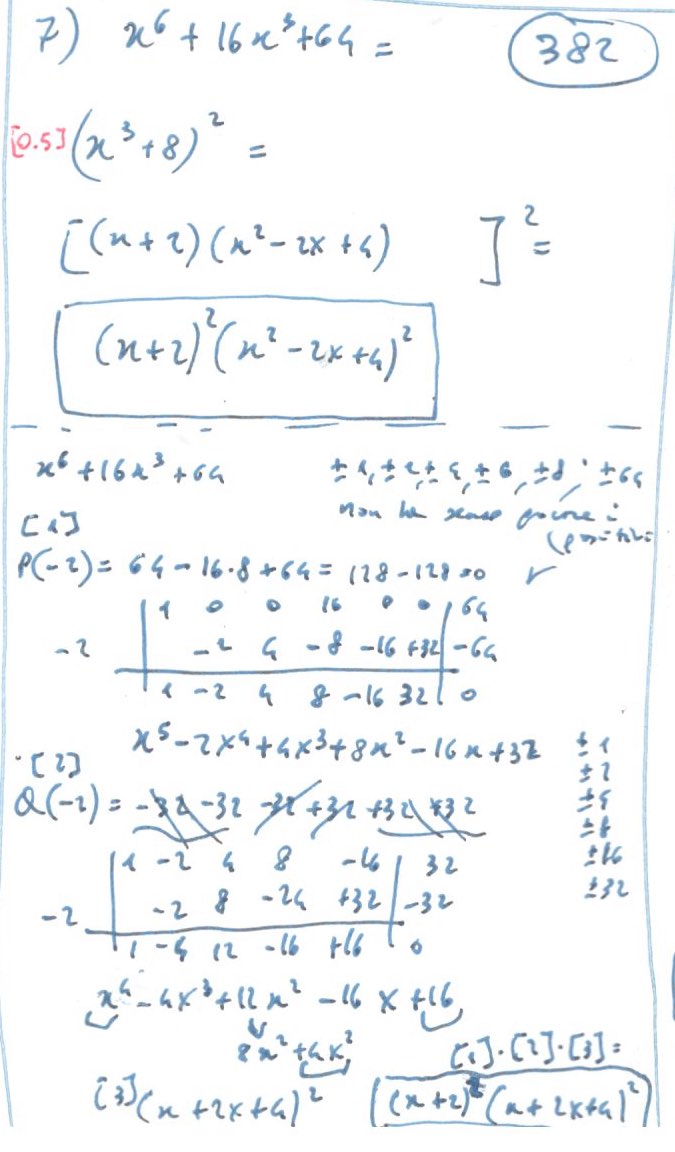 7) x⁶ + 16x³ + 64 =
382
[0.5] (x³ + 8)² =
[(x + 2)(x² - 2x + 4) ]² =
(x+2)²(x² - 2x + 4)²
x⁶ + 16x³ + 64
±1, ±2, ±4, ±6, ±8, ±64
Non ha senso
[1]
P(-2) = 64 - 16·8 + 64 = 128 - 128 = 0 ✓
1 0 0 16 0 0 | 64
-2 | -2 4 -8 -16 +32 | -64
1 -2 4 8 -16 32 | 0
x⁵ - 2x⁴ + 4x³ + 8x² - 16x + 32
±1
±2
±4
±8
±16
±32
[2]
Q(-2) = -32 -32 -32 +32 +32 +32
1 -2 4 8 -16 | 32
-2 | -2 8 -24 +32 | -32
1 -4 12 -16 +16 | 0
x⁴ - 4x³ + 12x² - 16x + 16
8x² + 4x²
[1]·[2]·[3] =
[3] (x + 2x + 4)²
(x+2)²(x + 2x + 4)²